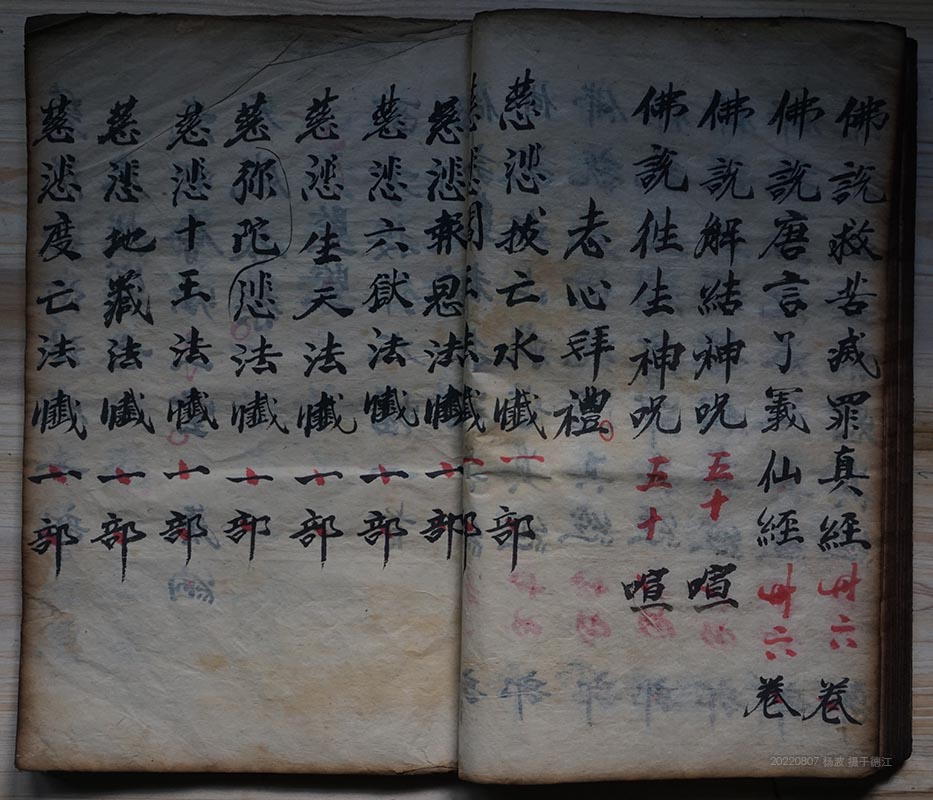 佛說救苦滅罪真經卅六卷
佛說唐言了義仙經卅六卷
佛說解結神呪五十喧
佛說往生神呪五十喧
志心拜禮
慈悲拔亡水懺一部
慈悲報恩法懺一部
慈悲六獄法懺一部
慈悲生天法懺一部
慈弥陀悲法懺一部
慈悲十王法懺一部
慈悲地藏法懺一部
慈悲度亡法懺一部
20220807 杨波 摄于德江